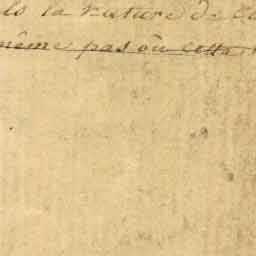 la nature de
même pas où cette